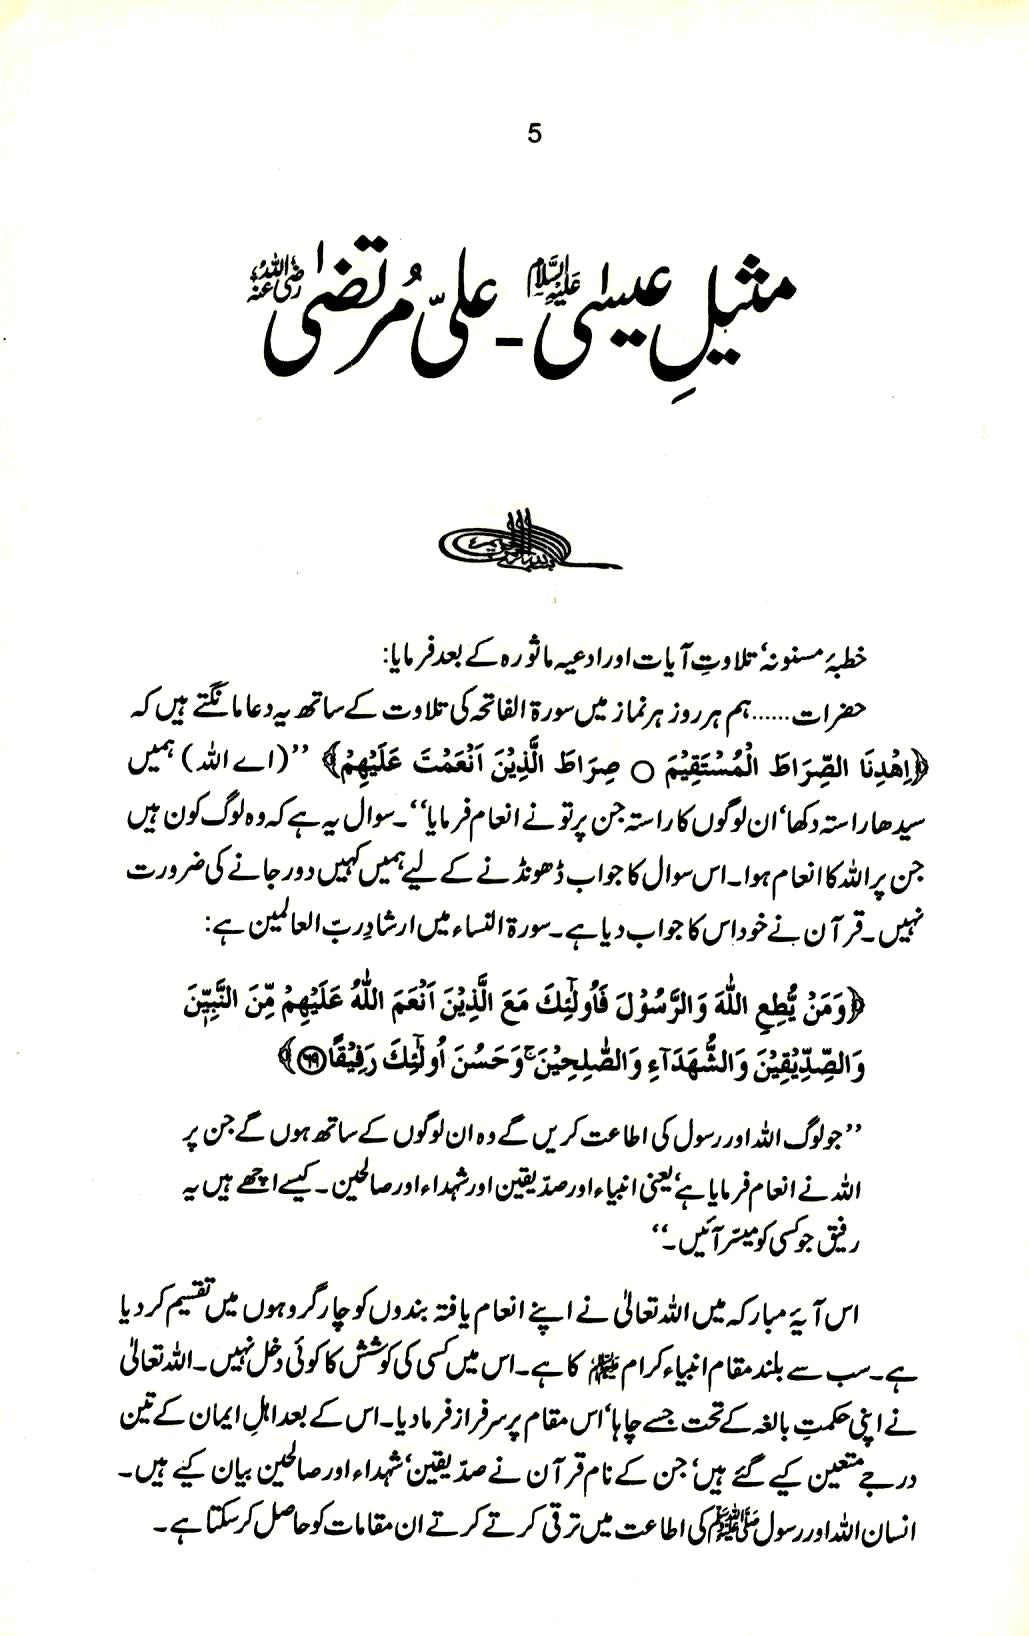 5
مثیلِ عیسیٰ علیہ السلام ۔ علیّ مُرتضیٰ رضی اللہ عنہ
خطبۂ مسنونہ‘ تلاوتِ آیات اور ادعیہ ماثورہ کے بعد فرمایا:
حضرات...... ہم ہر روز ہر نماز میں سورۃ الفاتحہ کی تلاوت کے ساتھ یہ دعا مانگتے ہیں کہ
﴿اِهْدِنَا الصِّرَاطَ الْمُسْتَقِيْمَ ○ صِرَاطَ الَّذِيْنَ اَنْعَمْتَ عَلَيْهِمْ﴾ ’’(اے اللہ) ہمیں
سیدھا راستہ دکھا‘ ان لوگوں کا راستہ جن پر تو نے انعام فرمایا‘‘۔ سوال یہ ہے کہ وہ لوگ کون ہیں
جن پر اللہ کا انعام ہوا۔ اس سوال کا جواب ڈھونڈنے کے لیے ہمیں کہیں دور جانے کی ضرورت
نہیں۔ قرآن نے خود اس کا جواب دیا ہے۔ سورۃ النساء میں ارشادِ ربّ العالمین ہے:
﴿وَمَنْ يُّطِعِ اللّٰهَ وَالرَّسُوْلَ فَاُولٰٓئِكَ مَعَ الَّذِيْنَ اَنْعَمَ اللّٰهُ عَلَيْهِمْ مِّنَ النَّبِيّٖنَ
وَالصِّدِّيْقِيْنَ وَالشُّهَدَآءِ وَالصّٰلِحِيْنَ ۚ وَحَسُنَ اُولٰٓئِكَ رَفِيْقًا ﴿۶۹﴾﴾
’’جو لوگ اللہ اور رسول کی اطاعت کریں گے وہ ان لوگوں کے ساتھ ہوں گے جن پر
اللہ نے انعام فرمایا ہے‘ یعنی انبیاء اور صدّیقین اور شہداء اور صالحین۔ کیسے اچھے ہیں یہ
رفیق جو کسی کو میسّر آئیں۔‘‘
اس آیۂ مبارکہ میں اللہ تعالیٰ نے اپنے انعام یافتہ بندوں کو چار گروہوں میں تقسیم کر دیا
ہے۔ سب سے بلند مقام انبیاء کرام علیہم السلام کا ہے۔ اس میں کسی کی کوشش کا کوئی دخل نہیں۔ اللہ تعالیٰ
نے اپنی حکمتِ بالغہ کے تحت جسے چاہا‘ اس مقام پر سرفراز فرما دیا۔ اس کے بعد اہلِ ایمان کے تین
درجے متعین کیے گئے ہیں‘ جن کے نام قرآن نے صدّیقین‘ شہداء اور صالحین بیان کیے ہیں۔
انسان اللہ اور رسول ﷺ کی اطاعت میں ترقی کرتے کرتے ان مقامات کو حاصل کر سکتا ہے۔